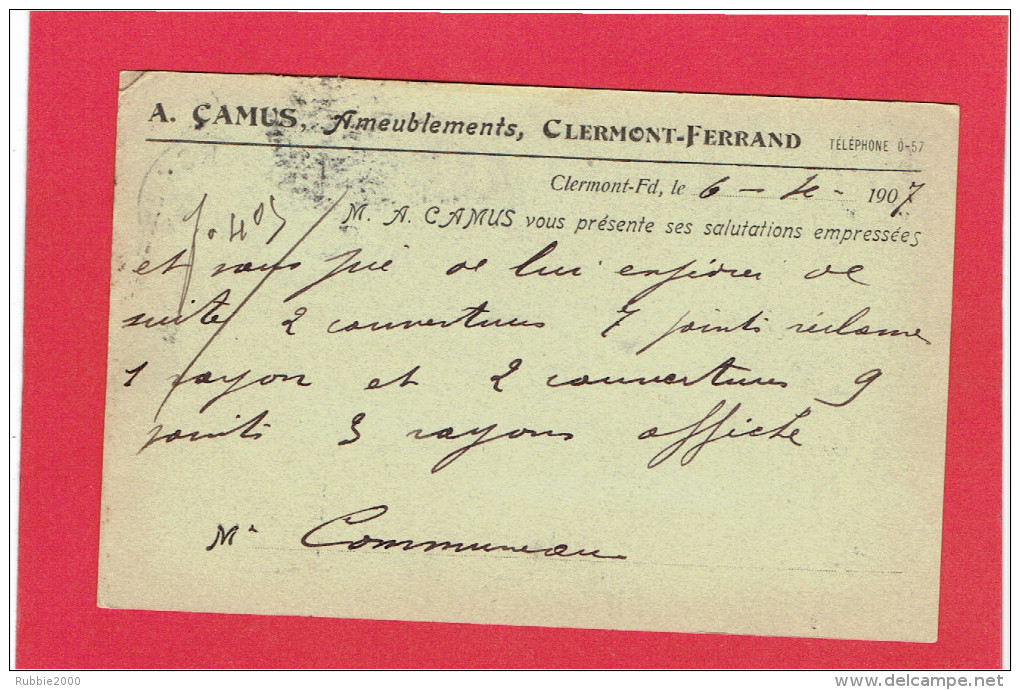 A. ÇAMUS, Ameublements, CLERMONT-FERRAND TÉLÉPHONE 0-57
Clermont-Fd, le 6 - 4 - 1907
M. A. CAMUS vous présente ses salutations empressées
et vous prie de lui expédier de
suite 2 couvertures 7 points réclame
1 rayon et 2 couvertures 9
points 3 rayons affiche
Mr Communeau
Rubbie2000
www.delcampe.net